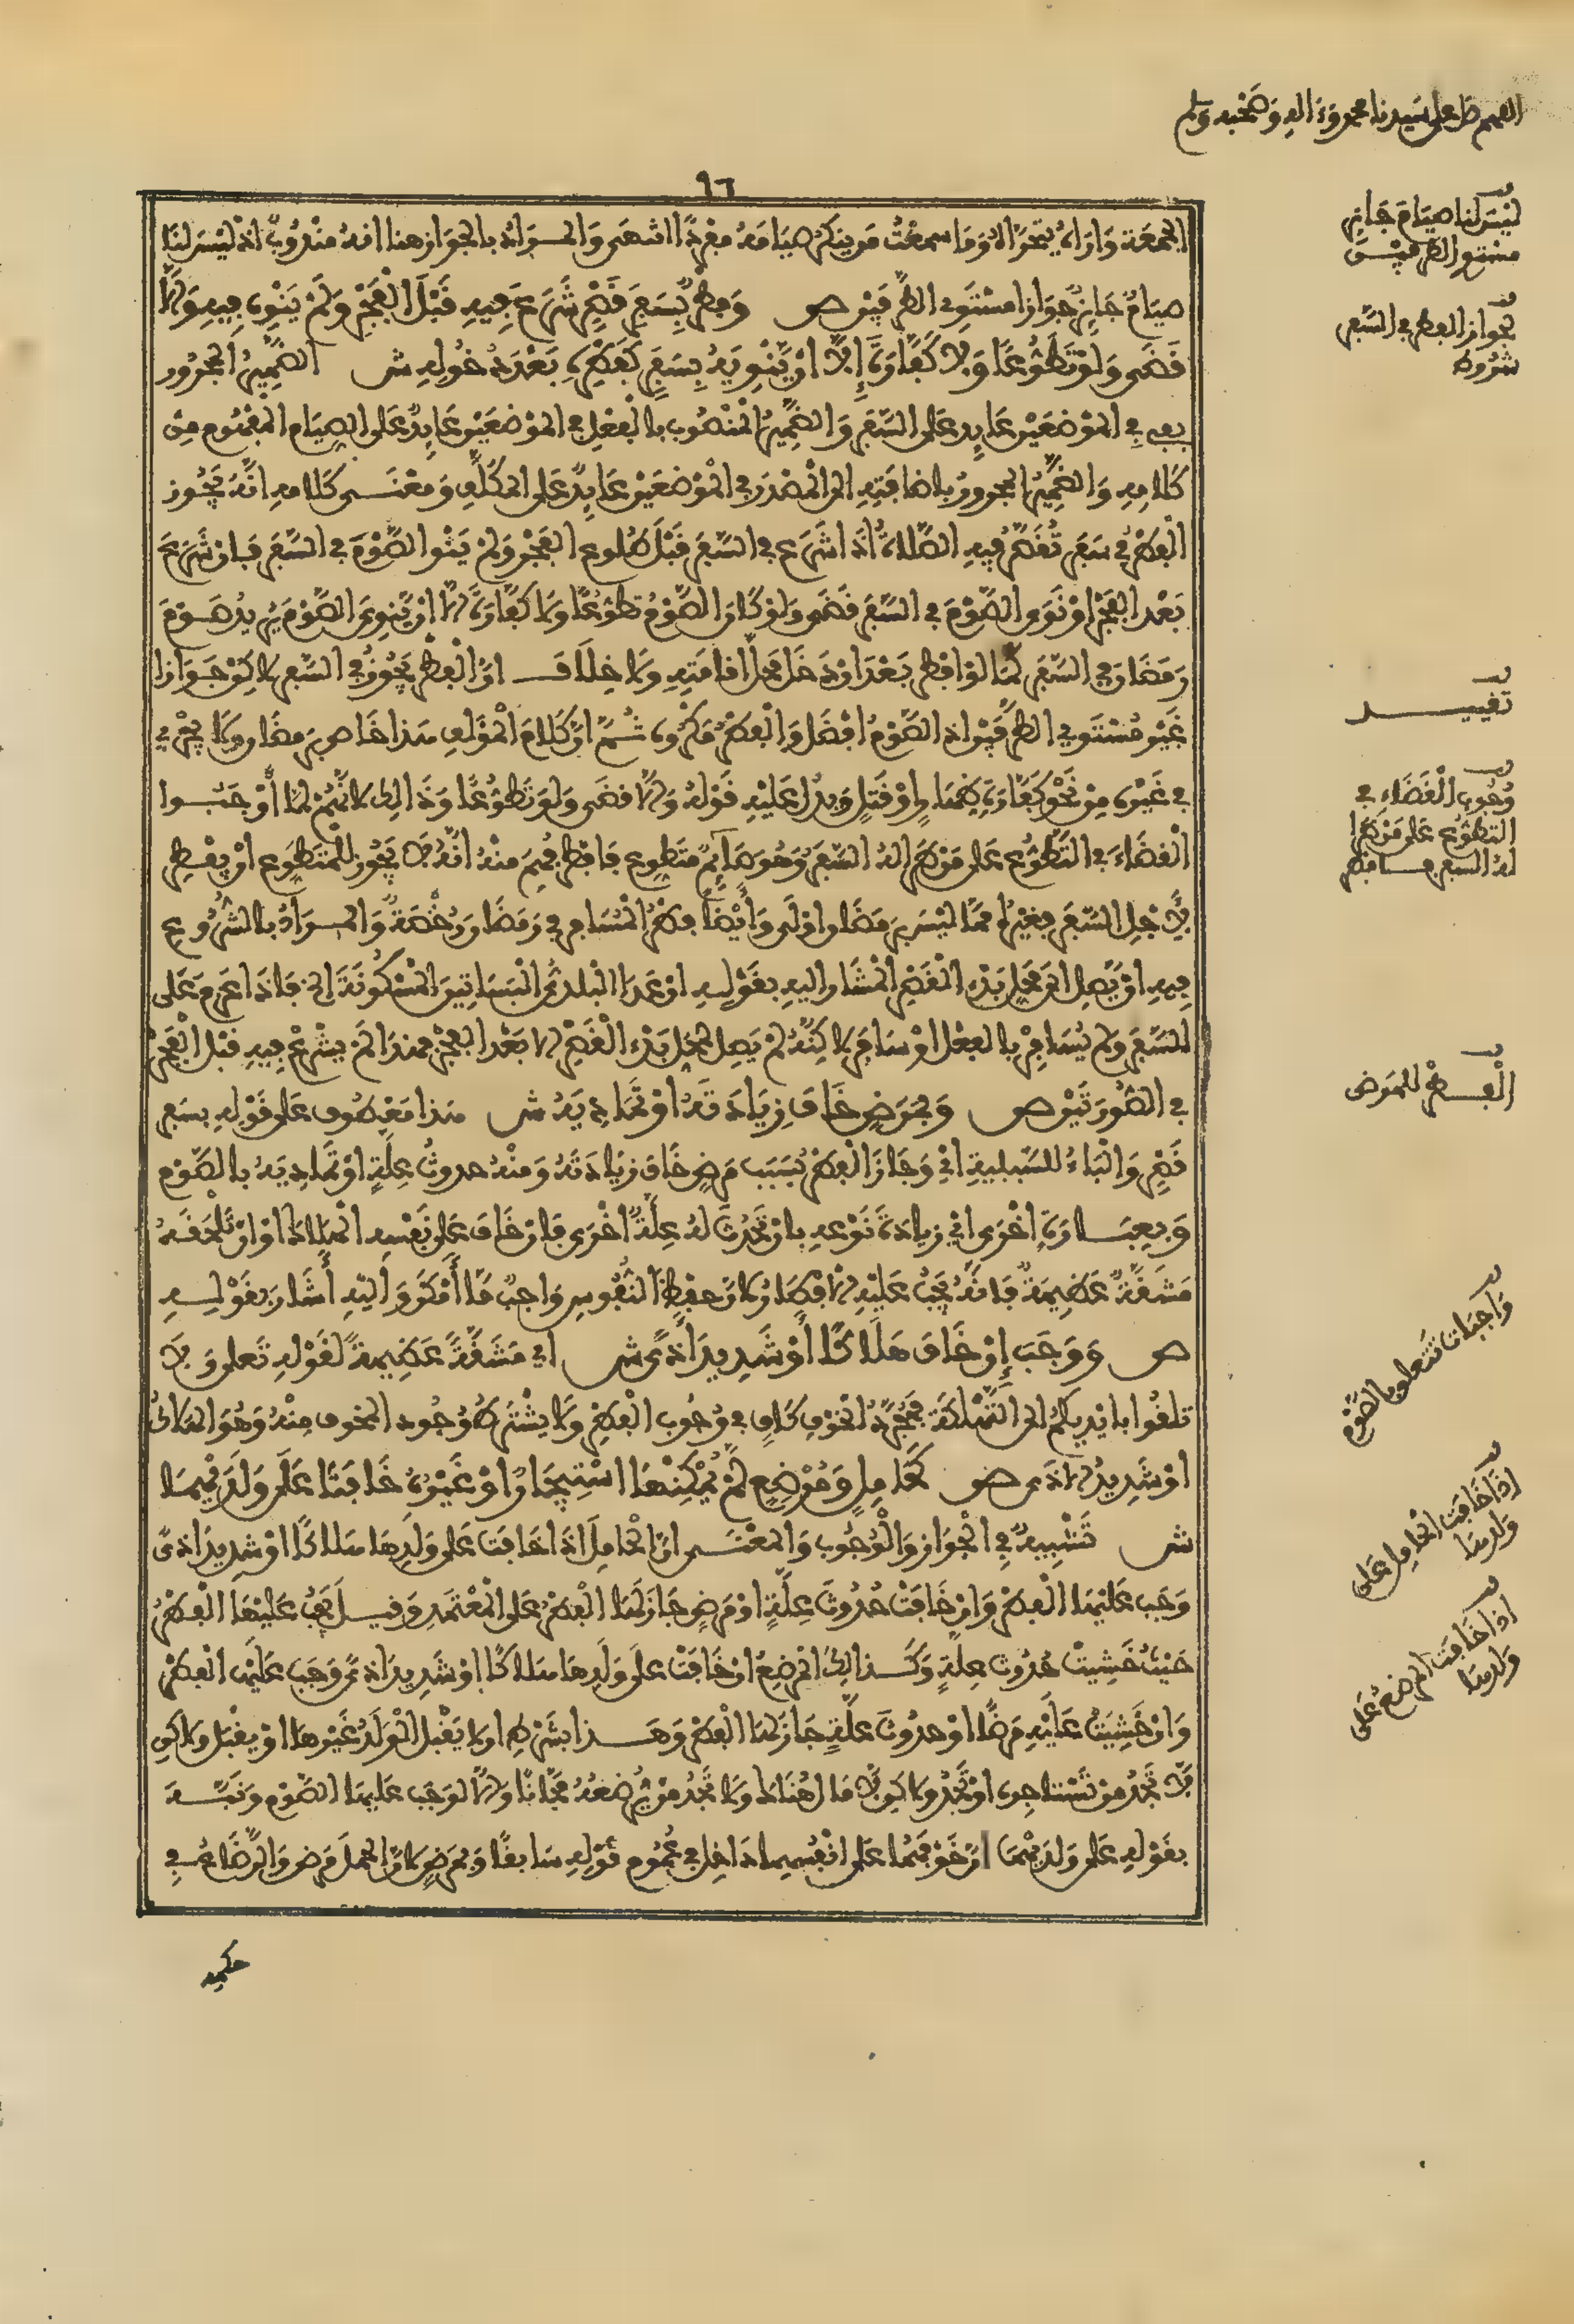 اللهم صل على سيدنا محمد وءاله وصحبه وسلم
٩٦
الجمعة وأراه يتحراه وما سمعت من ينكر صيامه مفردا انتهى والمراد بالجواز هنا انه مندوب اذ ليس لنا
صيام جايز جوازا مستوي الطرفين ص وفطر بسفر قصر شرع فيه قبل الفجر ولم ينوه فيه والا
قضى ولو تطوعا ولا كفارة إلا ان ينويه بسفر كفطره بعد دخوله ش الضمير المجرور
بفي في الموضعين عايد على السفر والضمير المنصوب بالفعل في الموضعين عايد على الصيام المفهوم من
كلامه والضمير المجرور باضافته الى المصدر في الموضعين عايد على المكلف ومعنى كلامه انه يجوز
الفطر في سفر تقصر فيه الصلاة اذا شرع في السفر قبل طلوع الفجر ولم ينو الصوم في السفر فان شرع
بعد الفجر او نوى الصوم في السفر قضى ولو كان الصوم تطوعا ولا كفارة الا ان ينوي الصوم يريد صوم
رمضان في السفر كما لو افطر بعد ان دخل محل اقامته ولا خلاف ان الفطر يجوز في السفر لاكن جوازا
غير مستوي الطرفين اذ الصوم افضل والفطر مكروه ثم ان كلام المؤلف هذا خاص برمضان ولا يجري
في غيره من نحو كفارة ظهار او قتل ويدل عليه قوله والا قضى ولو تطوعا وذالك لانهم لما أوجبوا
القضاء في التطوع على من طرا له السفر وهو صايم متطوع فافطر فهم منه انه لا يجوز للمتطوع ان يفطر
لاجل السفر فغيره مما ليس برمضان اولى وأيضا فطر المسافر في رمضان رخصة والمراد بالشروع
فيه ان يصل الى محل بدء القصر المشار اليه بقوله ان عدا البلدي البساتين المسكونة الخ فاذا عزم على
السفر ولم يسافر بالفعل او سافر لاكنه لم يصل لمحل بدء القصر الا بعد الفجر فهذا لم يشرع فيه قبل الفجر
في الصورتين ص وبمرض خاف زيادته او تماديه ش هذا معطوف على قوله بسفر
قصر والباء للسببية اي وجاز الفطر بسبب مرض خاف زيادته ومنه حدوث علة او تماديه بالصوم
وبعبارة اخرى اي زيادة نوعه بان تحدث له علة اخرى فان خاف على نفسه الهلاك او ان تلحقه
مشقة عظيمة فانه يجب عليه الافطار لان حفظ النفوس واجب ما أمكن واليه أشار بقوله
ص ووجب إن خاف هلاكا أو شديد أذى ش اي مشقة عظيمة لقوله تعلى ولا
تلقوا بايديكم الى التهلكة فمجرد الخوف كاف في وجوب الفطر ولا يشترط وجود المخوف منه وهو الهلاك
او شديد الاذى ص كحامل ومرضع لم يمكنها استيجار او غيره خافتا على ولديهما
ش تشبيه في الجواز والوجوب والمعنى ان الحامل اذا خافت على ولدها هلاكا او شديد اذى
وجب عليها الفطر وان خافت حدوث علة او مرض جاز لها الفطر على المعتمد وقيل يجب عليها الفطر
حيث خشيت حدوث علة وكذالك المرضع ان خافت على ولدها هلاكا او شديد اذى وجب عليها الفطر
وان خشيت عليه مرضا او حدوث علة جاز لها الفطر وهذا بشرط ان لا يقبل الولد غيرها او يقبل ولاكن
لا تجد من تستاجره او تجد ولاكن لا مال هناك ولا تجد من يرضعه مجانا والا لوجب عليها الصوم ونبه
بقوله على ولديهما ان خوفهما على انفسهما داخل في عموم قوله سابقا وبمرض لان الحمل مرض والرضاع في
حكمه
ليس لنا صيام جايز
مستو الطرفين
لجواز الفطر في السفر
شروط
تقييد
وجوب القضاء في
التطوع على من طرا
له السفر فافطر
الفطر للمرض
واجبات تتعلق بالصوم
إذا خافت الحامل على
ولدها
اذا خافت المرضع على
ولدها